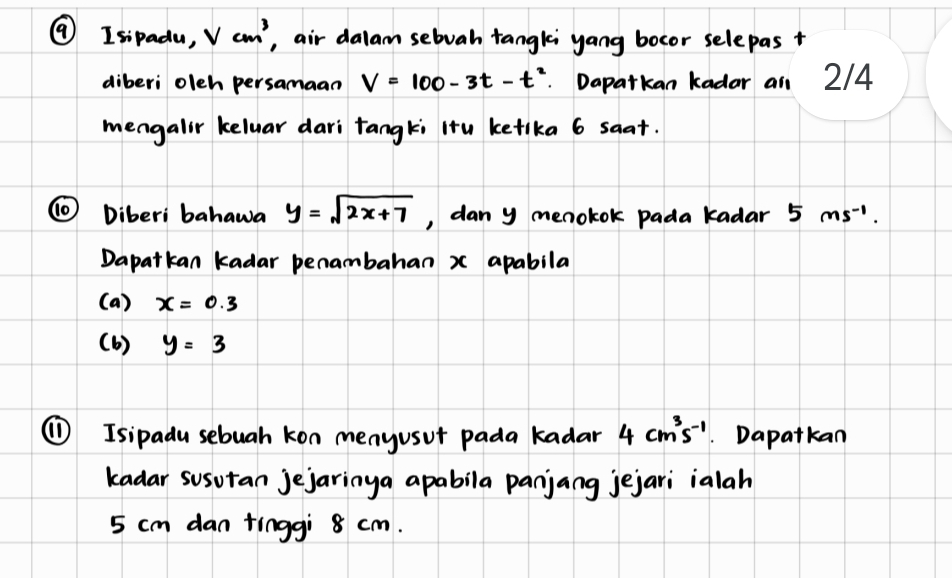 ⑨ Isipadu, V cm³, air dalam sebuah tangki yang bocor selepas t
diberi oleh persamaan V = 100 - 3t - t². Dapatkan kadar
2/4
mengalir keluar dari tangki itu ketika 6 saat.
⑩ Diberi bahawa y = √(2x+7), dan y menokok pada kadar 5 ms⁻¹.
Dapatkan kadar penambahan x apabila
(a) x = 0.3
(b) y = 3
⑪ Isipadu sebuah kon menyusut pada kadar 4 cm³s⁻¹. Dapatkan
kadar susutan jejarinya apabila panjang jejari ialah
5 cm dan tinggi 8 cm.